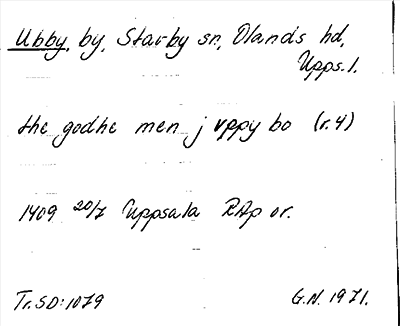 Ubby, by, Starby sn, Olands hd,
Upps. l.
the godhe men j vppy bo (r. 4)
1409 20/7 Uppsala RAp or.
Tr. SD: 1079
G.N. 1971.